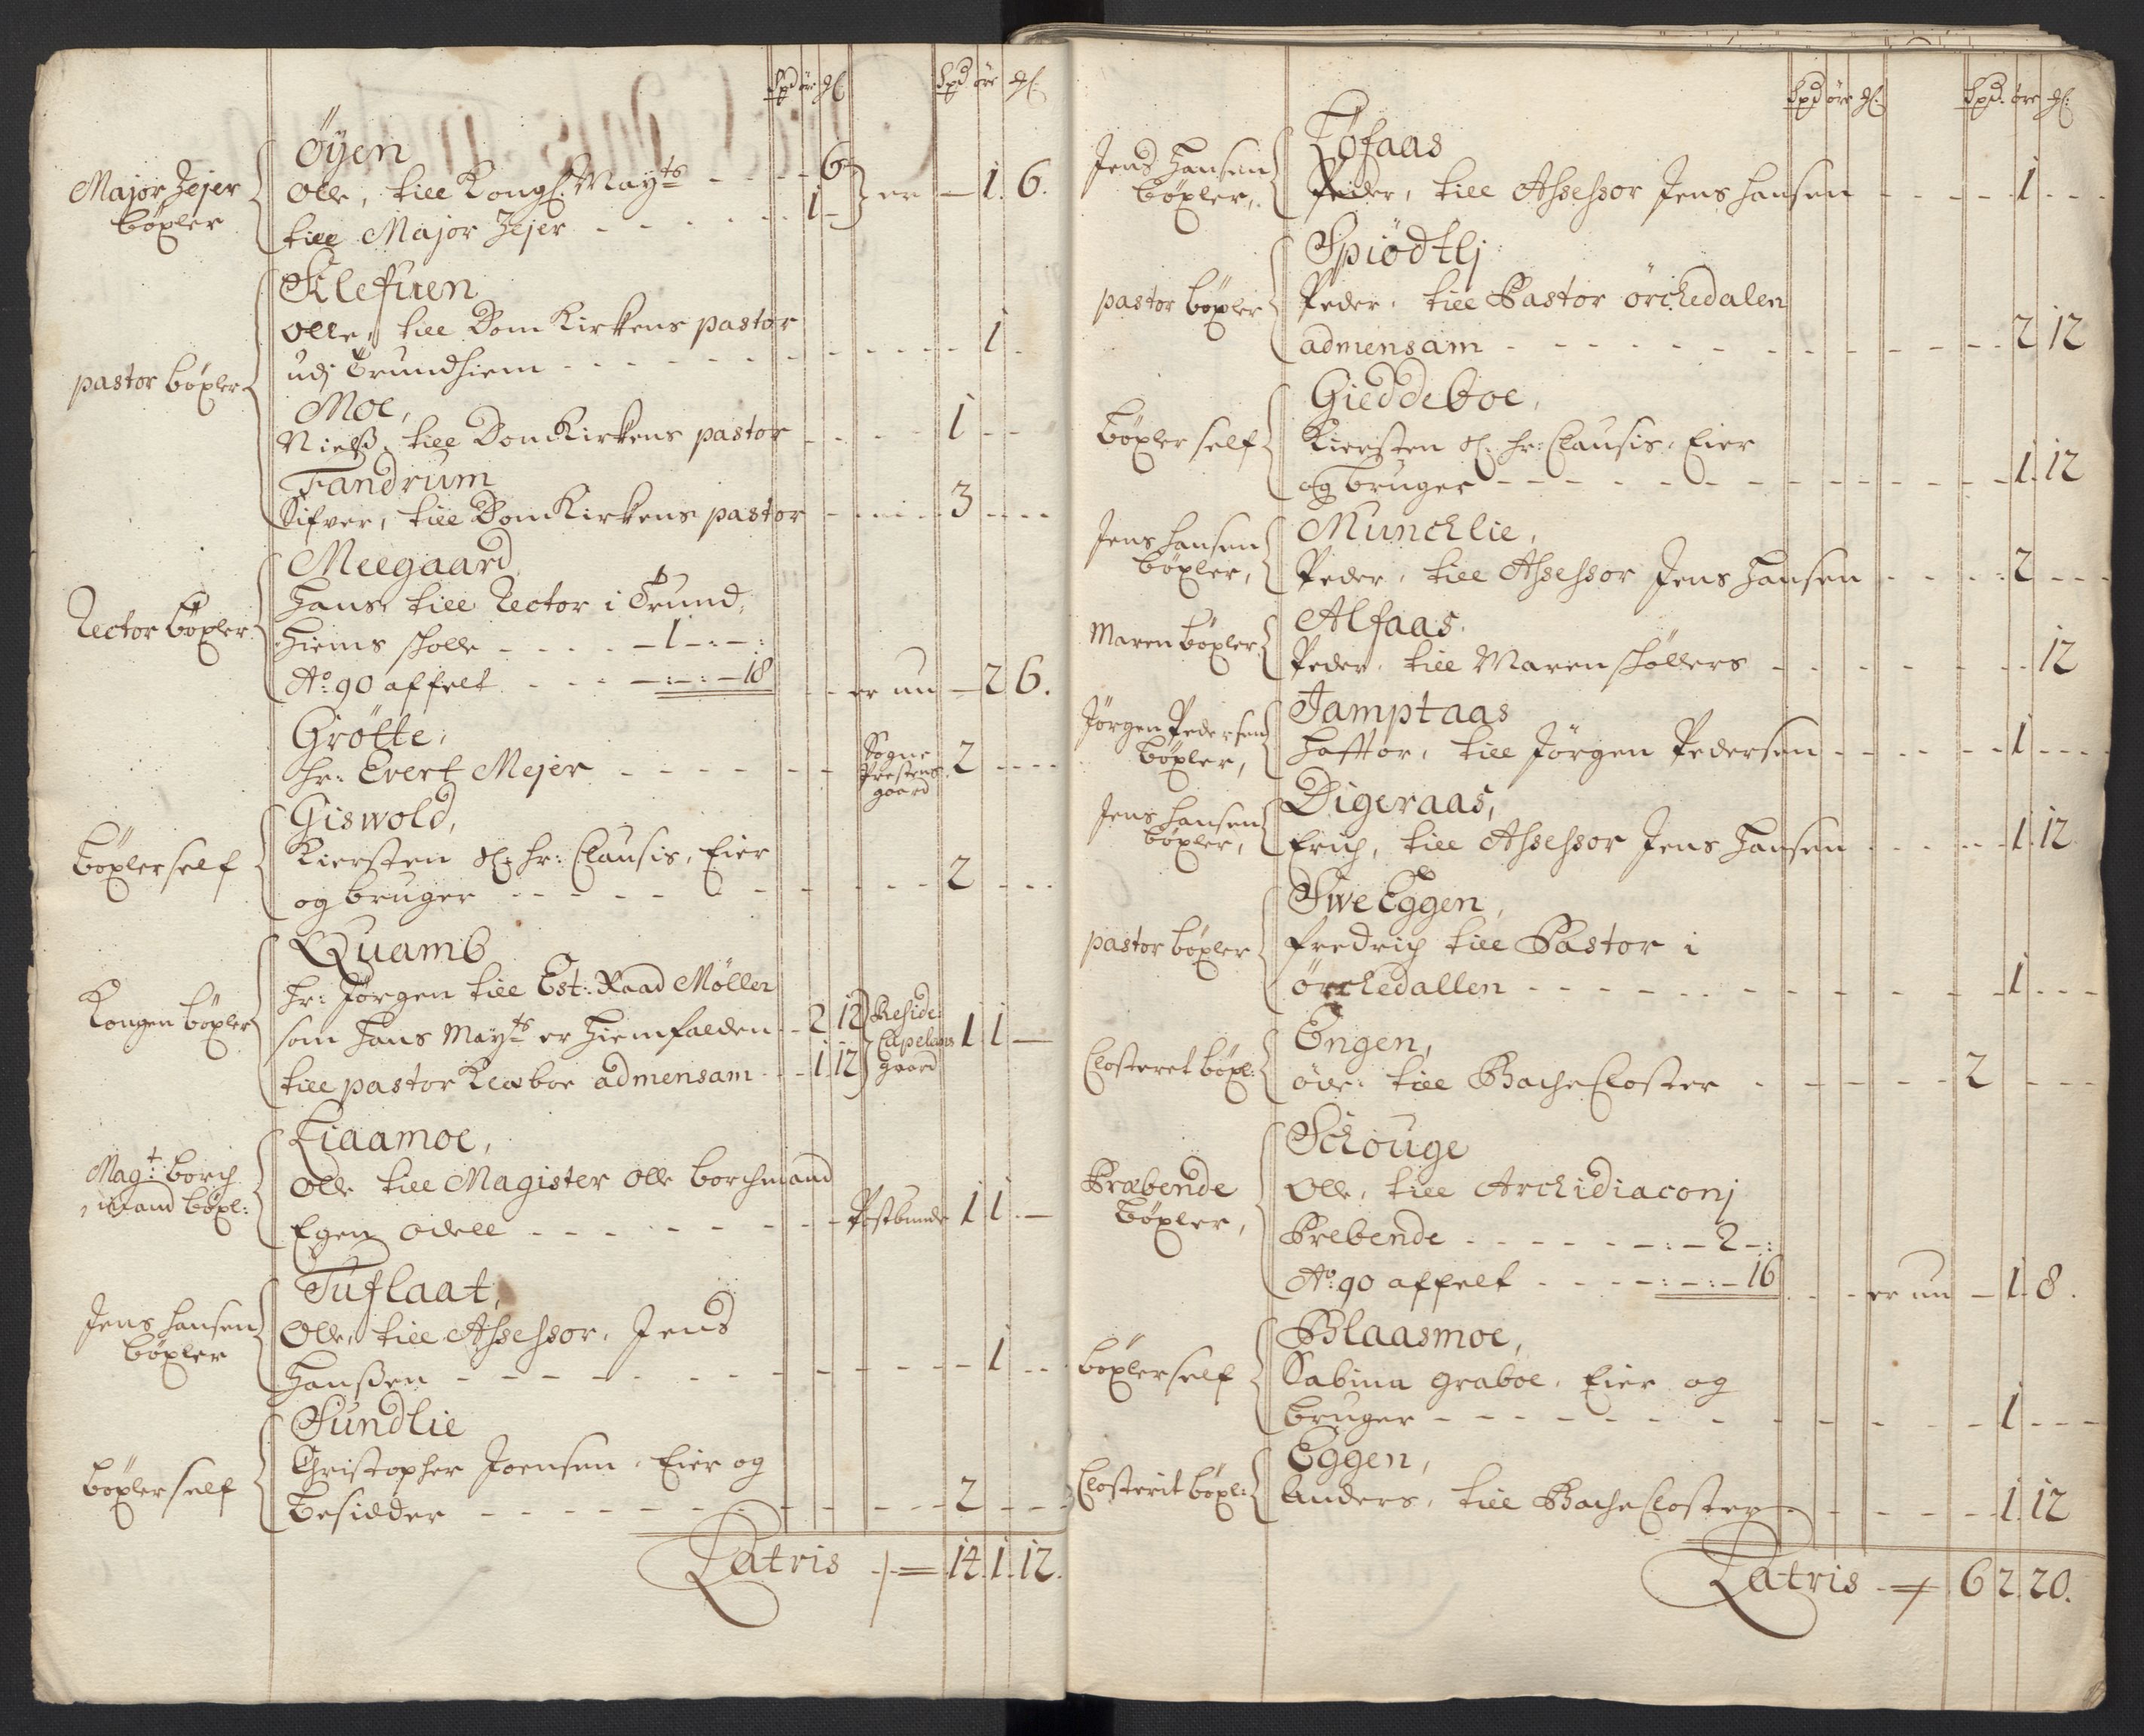 Spd øre ₰ Spd øre ₰
Major Hejer bøxler
Øyen
Olle, till Kongl. Mayts - - - - 6
till Major Hejer - - - - - 1 - er - 1. 6.
pastor bøxler
Klefuen
Olle, till Dom Kirkens pastor
udj Trundhiem - - - - - - - 1 -
Moe,
Nielß, till Dom Kirkens pastor - - - - 1 - -
Fandrum
Sifver, till Dom Kirkens pastor - - - - 3 - - -
Rector bøxler
Meegaard,
Hans till Rector i Trund,
hiems skolle - - - - - 1 - : - :
Ao. 90 affelt - - - - : - : - 18 - - er nu - 2 6.
Grøtte,
hr: Evert Mejer - - - - - - Sogne Prestens gaard 2 - - - -
bøxler self
Giswold,
Kiersten sl. hr: Clausis, Eier
og bruger - - - - - - - - - 2 - - -
Kongen bøxler
Quamb
hr: Jørgen till Est: Raad Møller
som Hans Mayts er hiemfalden - - 2 12 Reside: Capelans gaard 1 1 -
till pastor Klæboe admensam - - 1 12
Magt: borch,
mand bøxl:
Liaamoe,
Olle till Magister Olle borchmand
Egen odell - - - - - - - Postbunde 1 1 -
Jens Hansen bøxler
Tuflaat,
Olle, till Assessor, Jens
Hanßen - - - - - - - - - - 1 - -
bøxler self
Sundlie
Christopher Joensen, Eier og
besidder - - - - - - - - - - 2 - - -
Latris - = 14. 1. 12.
Spd øre ₰ Spd. øre ₰
Jens Hansen bøxler,
Tøfaas
Peder, till Assessor Jens Hansen - - - - 1 - - -
pastor bøxler
Spiødtlj
Peder, till Pastor Ørchedalen
admensam - - - - - - - - - - 2 12
bøxler self
Gieddeboe,
Kiersten sl. hr: Clausis, Eier
og bruger - - - - - - - - - - 1. 12
Jens Hansen bøxler,
Munchlie,
Peder, till Assessor Jens Hansen - - - - 2 - - -
Maren bøxler
Alfaas.
Peder, till Maren skøllers - - - - - - - 12
Jørgen Pedersen bøxler,
Jamptaas
Haftor, till Jørgen Pedersen - - - - - 1 - - - -
Jens Hansen bøxler,
Digeraas,
Erich, till Assessor Jens Hansen - - - - 1. 12
pastor bøxler
Swe Eggen,
fredrich till Pastor i
Ørchedallen - - - - - - - - - - 1 - - -
Closteret bøxl:
Engen,
till Bache Closter - - - - - 2 - - -
Præbende bøxler,
Schouge
Olle, till Archidiaconj
Prebende - - - - - - : - 2 - :
Ao. 90 affelt - - - - : - : - 16 - - - er nu - 1. 8.
bøxler self
Blaasmoe,
Sabina Graboe, Eier og
bruger - - - - - - - - - - - 1 - - -
Closterit bøxl:
Eggen,
Anders, till Bache Closter - - - - - 1. 12
Latris - = 6 2. 20.